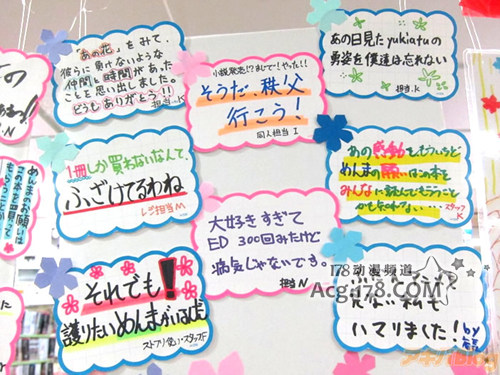 「あの花」をみて、
彼らに負けないような
仲間と時間があった
ことを思い出しました。
どうもありがとう!!
担当.K
小説発売!?まじで!やった!!
そうだ、秩父
行こう!
同人担当 I
あの日見たyukiatuの
勇姿を僕達は忘れない
担当.K
1冊しか買わないなんて、
ふざけてるわね
レジ担当M
大好きすぎて
ED 300回みたけど
病気じゃないです。
担当N
あの感動をもういちど
めんまの願いはこの本を
みんなに読んでもらうこと
かもしれない…
スタッフK
めんまのお願いは
この本を
それでも!
護りたいめんまがいるんだ
ストフリ使い・スタッフF
見ない私も
ハマりました!
by
178动漫频道
Acg178.COM
アキバBlog